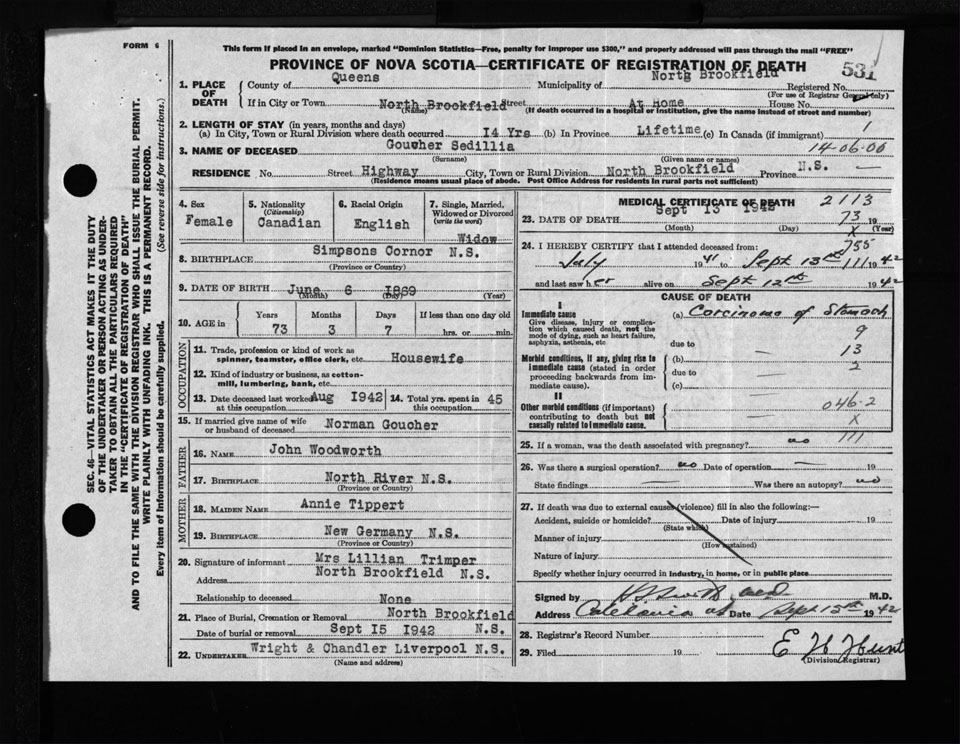 FORM 6
This form if placed in an envelope, marked "Dominion Statistics—Free, penalty for improper use $300," and properly addressed will pass through the mail "FREE"
PROVINCE OF NOVA SCOTIA—CERTIFICATE OF REGISTRATION OF DEATH
531
1. PLACE OF DEATH
County of Queens Municipality of Nortg Brookfield Registered No.
(For use of Registrar General only)
If in City or Town North Brookfield Street At Home House No.
(Name) (If death occurred in a hospital or institution, give the name instead of street and number)
2. LENGTH OF STAY (in years, months and days)
(a) In City, Town or Rural Division where death occurred I4 Yrs (b) In Province Lifetime (c) In Canada (if immigrant) 1
3. NAME OF DECEASED Goucher Sedillia 14-06-00
(Surname) (Given name or names)
RESIDENCE No. Street Highway City, Town or Rural Division North Brookfield Province N.S. —
(Residence means usual place of abode. Post Office Address for residents in rural parts not sufficient)
SEC. 46—VITAL STATISTICS ACT MAKES IT THE DUTY
OF THE UNDERTAKER OR PERSON ACTING AS UNDER-
TAKER TO OBTAIN ALL THE PARTICULARS REQUIRED
IN THE "CERTIFICATE OF REGISTRATION OF DEATH"
AND TO FILE THE SAME WITH THE DIVISION REGISTRAR WHO SHALL ISSUE THE BURIAL PERMIT.
WRITE PLAINLY WITH UNFADING INK. THIS IS A PERMANENT RECORD.
Every item of Information should be carefully supplied. (See reverse side for instructions.)
4. Sex
Female
5. Nationality
(Citizenship)
Canadian
6. Racial Origin
English
7. Single, Married,
Widowed or Divorced
(write the word)
Widow
8. BIRTHPLACE Simpsons Cornor N.S.
(Province or Country)
9. DATE OF BIRTH June 6 I869
(Month) (Day) (Year)
10. AGE in
Years Months Days If less than one day old
73 3 7 hrs. or min.
OCCUPATION
11. Trade, profession or kind of work as
spinner, teamster, office clerk, etc. Housewife
12. Kind of industry or business, as cotton-
mill, lumbering, bank, etc.
13. Date deceased last worked at this occupation Aug I942
14. Total yrs. spent in this occupation 45
15. If married give name of wife
or husband of deceased Norman Goucher
FATHER
16. NAME John Woodworth
17. BIRTHPLACE North River N.S.
(Province or Country)
MOTHER
18. MAIDEN NAME Annie Tippert
19. BIRTHPLACE New Germany N.S.
(Province or Country)
20. Signature of informant Mrs Lillian Trimper
Address North Brookfield N.S.
Relationship to deceased None
21. Place of Burial, Cremation or Removal North Brookfield
Date of burial or removal Sept I5 I942 N.S.
22. UNDERTAKER Wright & Chandler Liverpool N.S.
(Name and address)
MEDICAL CERTIFICATE OF DEATH 2113
23. DATE OF DEATH Sept I3 1942 73 19
(Month) (Day) (Year)
X
24. I HEREBY CERTIFY that I attended deceased from: 755
July 1941 to Sept 13th 111 1942
and last saw her alive on Sept 12th 1942
CAUSE OF DEATH
I
Immediate cause
Give disease, injury or complication which caused death, not the mode of dying, such as heart failure, asphyxia, asthenia, etc
(a) Carcinoma of Stomach
9
due to 13
Morbid conditions, if any, giving rise to immediate cause (stated in order proceeding backwards from immediate cause).
(b) — 2
due to —
(c) —
II
Other morbid conditions (if important) contributing to death but not causally related to immediate cause.
046-2
X
111
25. If a woman, was the death associated with pregnancy? no
26. Was there a surgical operation? no Date of operation — 19
State findings — Was there an autopsy? no
27. If death was due to external causes (violence) fill in also the following:—
Accident, suicide or homicide? Date of injury 19
(State which)
Manner of injury
(How sustained)
Nature of injury
Specify whether injury occurred in industry, in home, or in public place
Signed by M.D.
Address Caledonia Date Sept 15th 1942
28. Registrar's Record Number
29. Filed 19 E W Hunt
(Division Registrar)